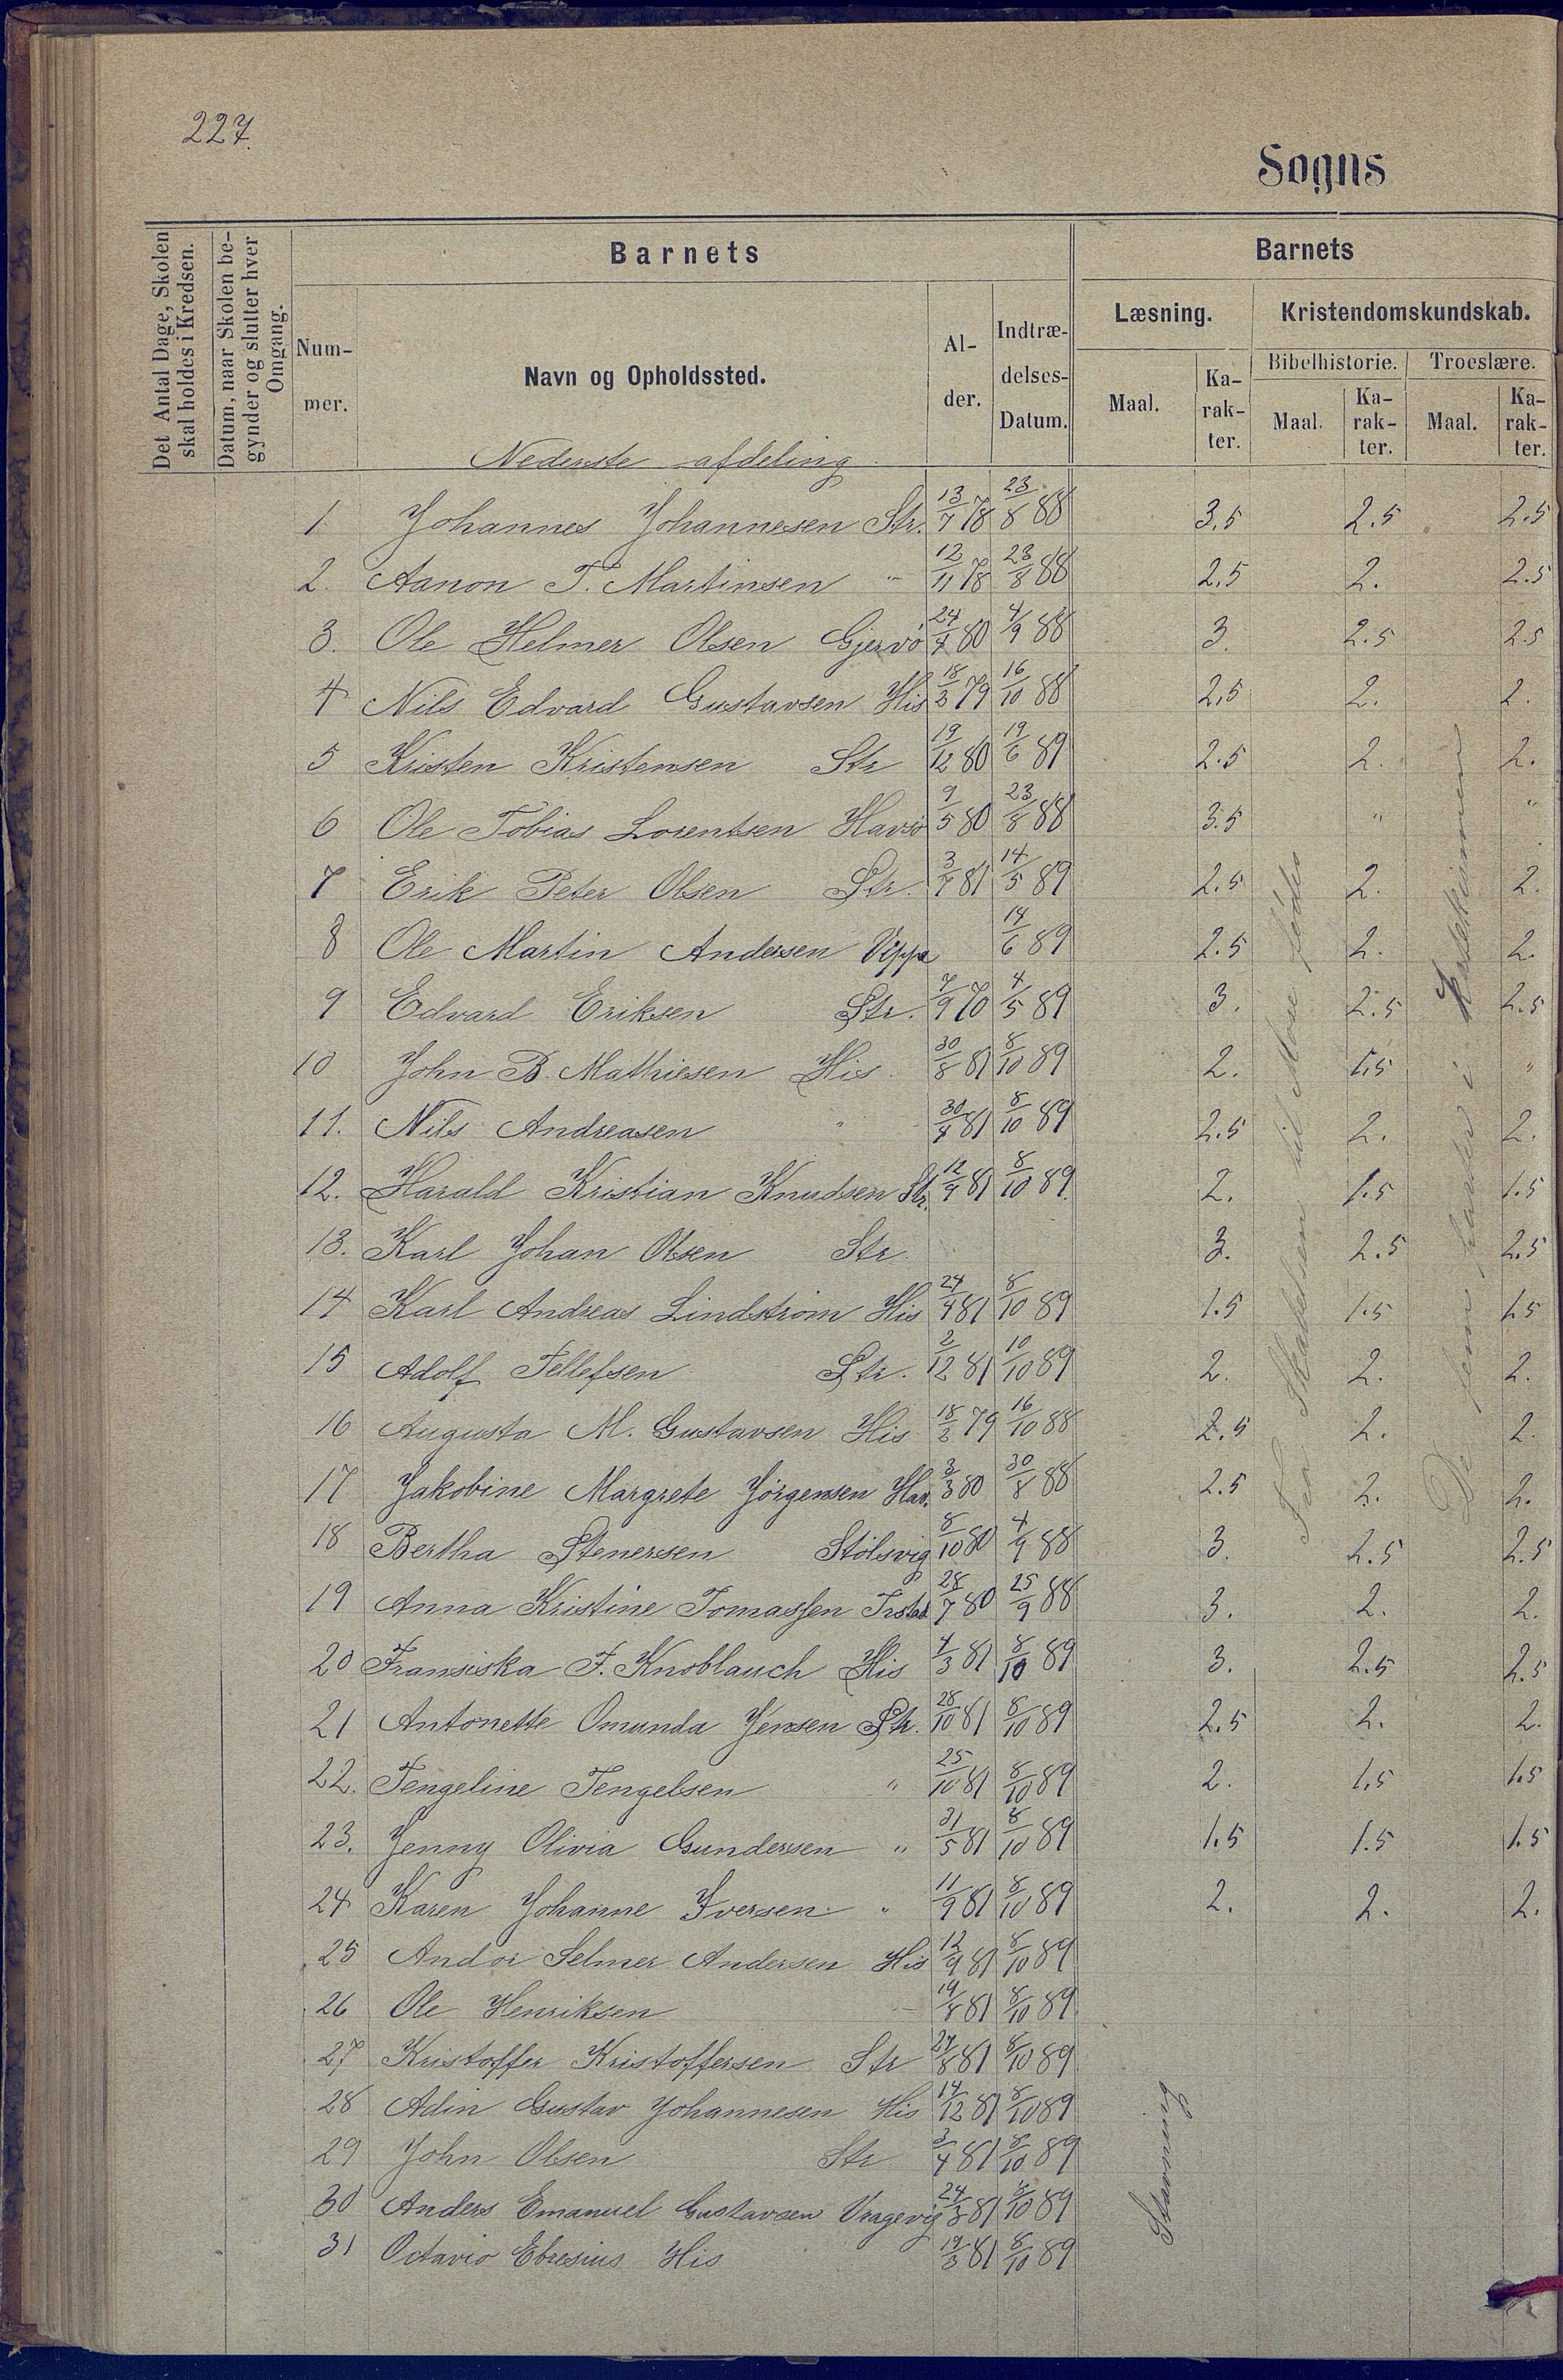 227.
Sogns
Det Antal Dage, Skolen skal holdes i Kredsen.
Datum, naar Skolen begynder og slutter hver Omgang.
Barnets
Barnets
Nummer.
Navn og Opholdssted.
Alder.
Indtrædelses-Datum.
Læsning.
Kristendomskundskab.
Bibelhistorie.
Troeslære.
Maal.
Karakter.
Maal.
Karakter.
Maal.
Karakter.
Nederste afdeling
1 Johannes Johannesen Str. 13/7 78 23/8 88 3,5 2.5 2.5
2. Aanon T. Martinsen " 12/11 78 23/8 88 2,5 2. 2.5
3. Ole Helmer Olsen Gjervø 24/4 80 4/9 88 3. 2.5 2.5
4 Nils Edvard Gustavsen His 18/3 79 16/10 88 2,5 2. 2.
5 Kristen Kristensen Str 19/12 80 19/6 89 2.5 2. 2.
6 Ole Tobias Lorentsen Havsø 9/5 80 23/8 88 3.5 " "
7 Erik Peter Olsen Str. 3/7 81 14/5 89 2.5 2. 2.
8 Ole Martin Andersen Vippa 14/6 89 2.5 2. 2.
9 Edvard Eriksen Str. 7/9 70 4/5 89 3. 2.5 2.5
10 John B. Mathiesen His 30/8 81 8/10 89 2. 1.5 "
11. Nils Andreasen " 30/4 81 8/10 89 2.5 2. 2.
12. Harald Kristian Knudsen Str. 12/9 81 8/10 89. 2. 1.5 1.5
13. Karl Johan Olsen Str 3. 2.5 2.5
14 Karl Andreas Lindstrøm His 24/9 81 8/10 89 1.5 1.5 1.5
15 Adolf Tellefsen Str. 2/12 81 10/10 89 2. 2. 2.
16 Augusta M. Gustavsen His 18/3 79 16/10 88 2.5 2. 2.
17 Jakobine Margrete Jørgensen Hav. 3/3 80 30/8 88 2.5 2. 2.
18 Bertha Stenersen Stølsvig 8/10 80 4/9 88 3. 2.5 2.5
19 Anna Kristine Tomassen 28/7 80 25/9 88 3. 2. 2.
20 Fransiska F. Knoblauch His 4/3 81 8/10 89 3. 2.5 2.5
21 Antonette Omunda Jensen Str. 28/10 81 8/10 89 2.5 2. 2.
22. Tengeline Tengelsen " 25/10 81 8/10 89 2. 1.5 1.5
23. Jenny Olivia Gundersen " 31/5 81 8/10 89 1.5 1.5 1.5
24 Karen Johanne Iversen " 11/9 81 8/10 89 2. 2. 2.
25 Andor Selmer Andersen His 12/9 81 8/10 89
26 Ole Henriksen 19/8 81 8/10 89
27 Kristoffer Kristoffersen Str 27/8 81 8/10 89
28 Adin Gustav Johannesen His 14/12 81 8/10 89
29 John Olsen Str 3/4 81 8/10 89
30 Anders Emanuel Gustavsen Vragevig 24/3 81 8/10 89
31 Octavio Ebresius His 19/3 81 8/10 89
Fra Skabelsen til Mose fødes
De fem parter i Katekismen
Stavning